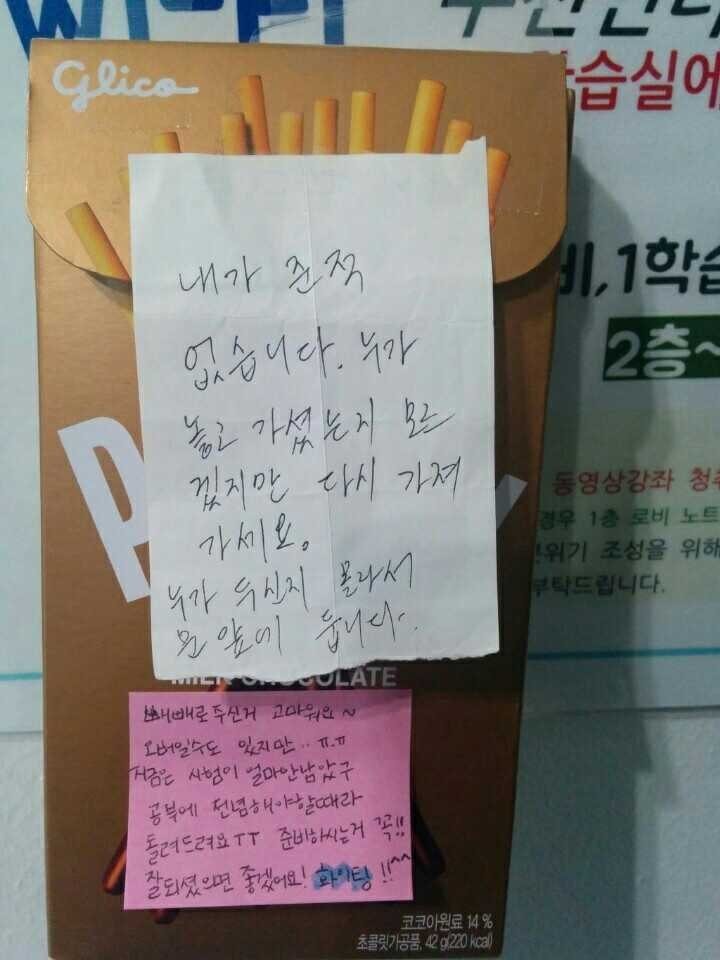 Glico
습실에
비,1학습
2층~
동영상강좌 청취
경우 1층 로비 노트
분위기 조성을 위해
부탁드립니다.
내가 준적
없습니다. 누가
놓고 가셨는지 모르
겠지만 다시 가져
가세요.
누가 두신지 몰라서
문앞에 둡니다.
MILK CHOCOLATE
빼빼로주신거 고마워요~
오버일수도 있지만.. ㅠ.ㅠ
지금은 시험이 얼마안남았구
공부에 전념해야할때라
돌려드려요ㅜㅜ 준비하시는거 꼭!!
잘되셨으면 좋겠어요! 화이팅!!^^
코코아원료 14 %
초콜릿가공품, 42 g(220 kcal)